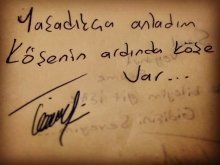 Yaşadıkça anladım
Köşenin ardında köşe
var...